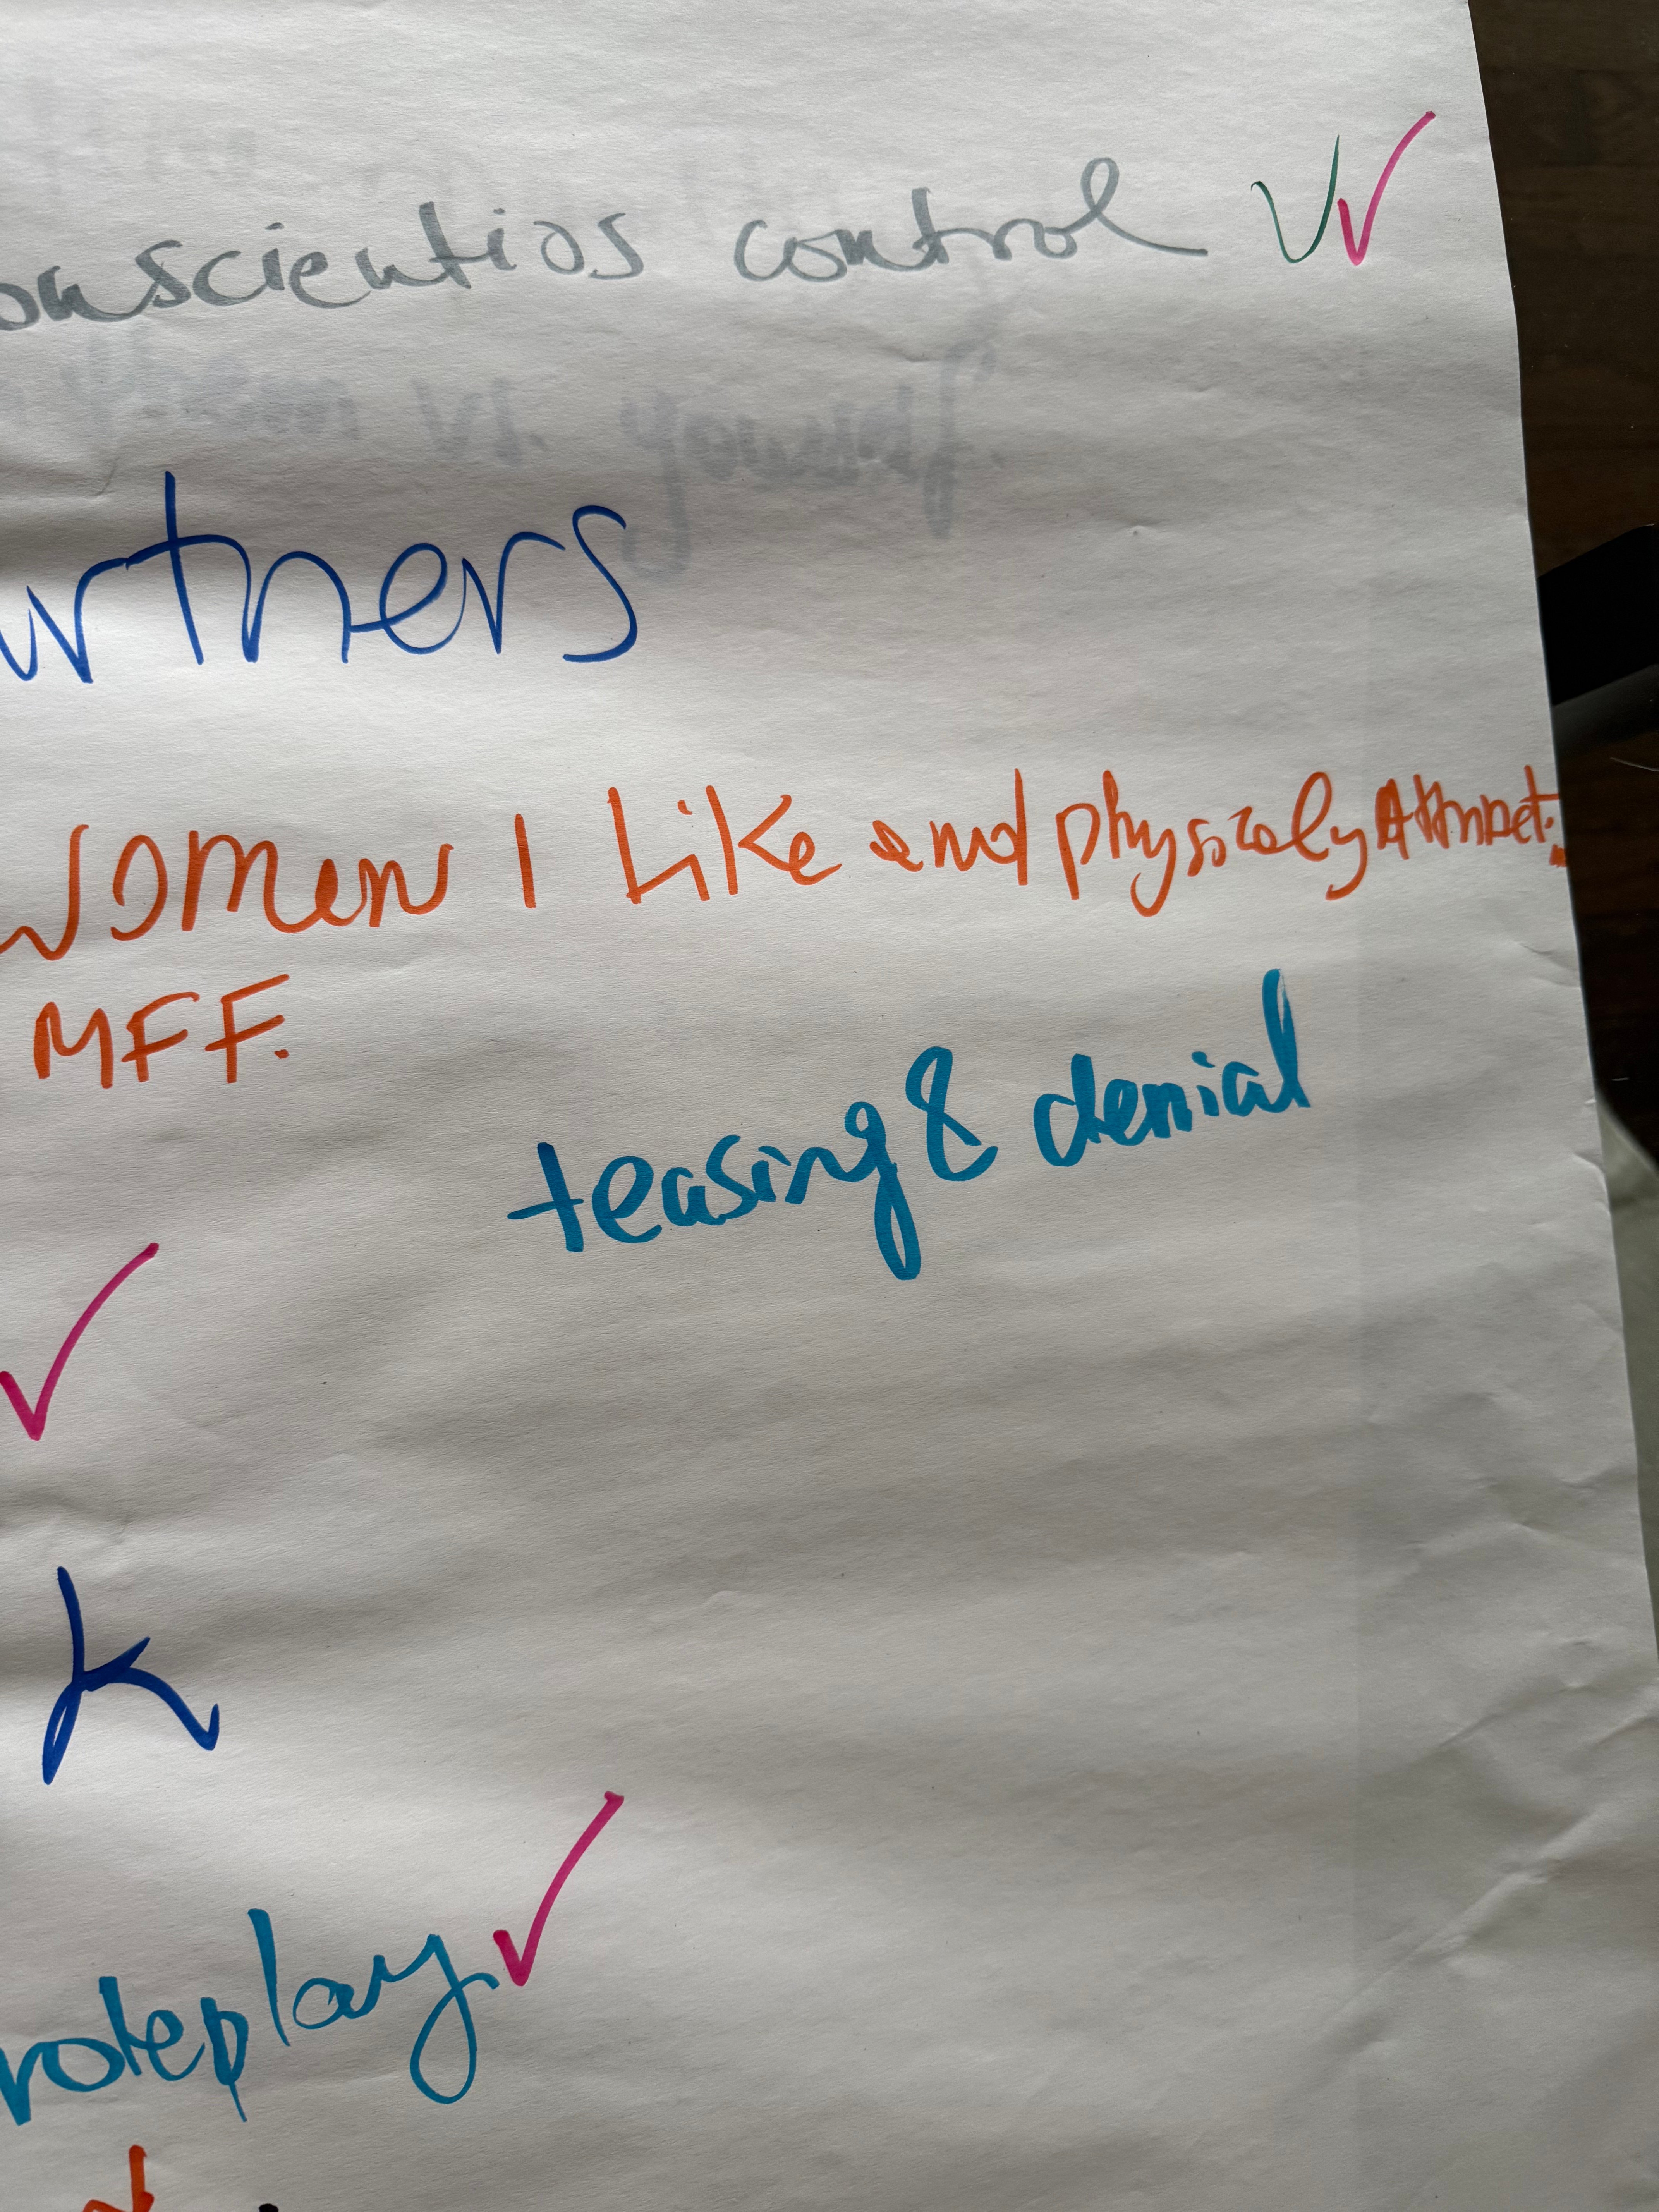 onscientios control
artners
women I Like and physicaly Attract.
MFF.
teasing & denial
k
roleplay